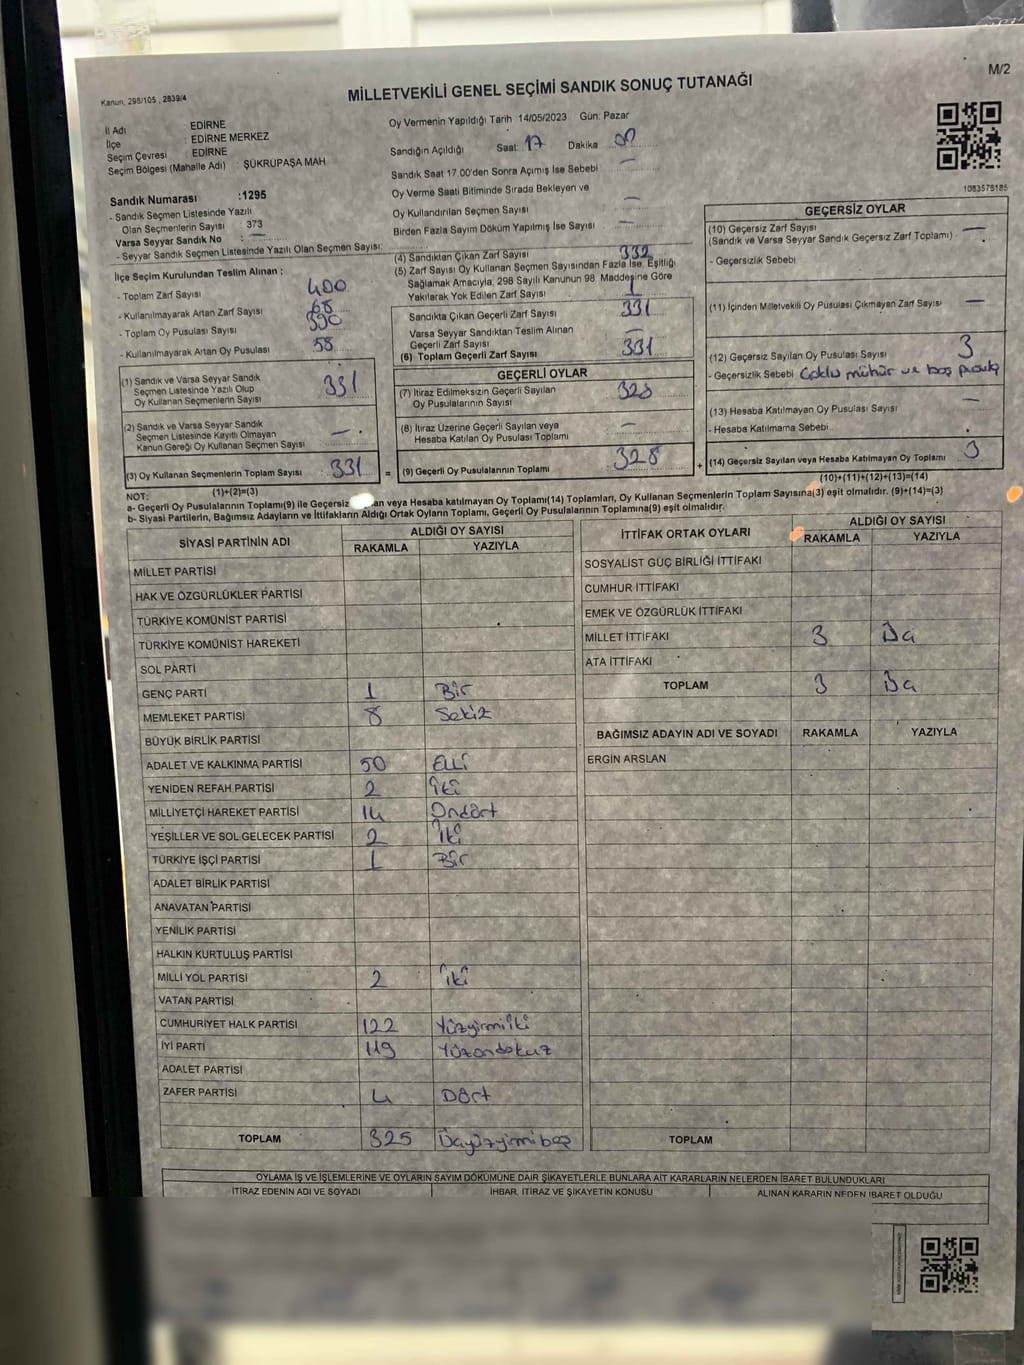 M/2
Kanun, 298/105 , 2839/4
MİLLETVEKİLİ GENEL SEÇİMİ SANDIK SONUÇ TUTANAĞI
İl Adı EDİRNE
İlçe : EDİRNE MERKEZ
Seçim Çevresi : EDİRNE
Seçim Bölgesi (Mahalle Adı) : ŞÜKRUPAŞA MAH
Oy Vermenin Yapıldığı Tarih 14/05/2023 Gün: Pazar
Sandığın Açıldığı Saat: 17 Dakika 00
Sandık Saat 17.00'den Sonra Açımış İse Sebebi —
Oy Verme Saati Bitiminde Sırada Bekleyen ve
Oy Kullandırılan Seçmen Sayısı —
Birden Fazla Sayım Döküm Yapılmış İse Sayısı —
1083579185
Sandık Numarası :1295
- Sandık Seçmen Listesinde Yazılı
Olan Seçmenlerin Sayısı : 373
Varsa Seyyar Sandık No : —
- Seyyar Sandık Seçmen Listesinde Yazılı Olan Seçmen Sayısı:
İlçe Seçim Kurulundan Teslim Alınan :
- Toplam Zarf Sayısı 400
- Kullanılmayarak Artan Zarf Sayısı 68
- Toplam Oy Pusulası Sayısı 390
- Kullanılmayarak Artan Oy Pusulası 58
(1) Sandık ve Varsa Seyyar Sandık
Seçmen Listesinde Yazılı Olup
Oy Kullanan Seçmenlerin Sayısı 331
(2) Sandık ve Varsa Seyyar Sandık
Seçmen Listesinde Kayıtlı Olmayan
Kanun Gereği Oy Kullanan Seçmen Sayısı —
(3) Oy Kullanan Seçmenlerin Toplam Sayısı : 331
(1)+(2)=(3)
(4) Sandıktan Çıkan Zarf Sayısı 332
(5) Zarf Sayısı Oy Kullanan Seçmen Sayısından Fazla İse, Eşitliği
Sağlamak Amacıyla, 298 Sayılı Kanunun 98. Maddesine Göre
Yakılarak Yok Edilen Zarf Sayısı 1
Sandıkta Çıkan Geçerli Zarf Sayısı 331
Varsa Seyyar Sandıktan Teslim Alınan
Geçerli Zarf Sayısı —
(6) Toplam Geçerli Zarf Sayısı 331
GEÇERLİ OYLAR
(7) İtiraz Edilmeksizin Geçerli Sayılan
Oy Pusulalarının Sayısı 328
(8) İtiraz Üzerine Geçerli Sayılan veya
Hesaba Katılan Oy Pusulası Toplamı —
= (9) Geçerli Oy Pusulalarının Toplamı 328 +
GEÇERSİZ OYLAR
(10) Geçersiz Zarf Sayısı
(Sandık ve Varsa Seyyar Sandık Geçersiz Zarf Toplamı) —
- Geçersizlik Sebebi
(11) İçinden Milletvekili Oy Pusulası Çıkmayan Zarf Sayısı —
(12) Geçersiz Sayılan Oy Pusulası Sayısı 3
- Geçersizlik Sebebi Çoklu mühür ve boş pusula
(13) Hesaba Katılmayan Oy Pusulası Sayısı —
- Hesaba Katılmama Sebebi
(14) Geçersiz Sayılan veya Hesaba Katılmayan Oy Toplamı 3
(10)+(11)+(12)+(13)=(14)
NOT:
a- Geçerli Oy Pusulalarının Toplamı(9) ile Geçersiz veya Hesaba katılmayan Oy Toplamı(14) Toplamları, Oy Kullanan Seçmenlerin Toplam Sayısına(3) eşit olmalıdır. (9)+(14)=(3)
b- Siyasi Partilerin, Bağımsız Adayların ve İttifakların Aldığı Ortak Oyların Toplamı, Geçerli Oy Pusulalarının Toplamına(9) eşit olmalıdır.
SİYASİ PARTİNİN ADI ALDIĞI OY SAYISI
RAKAMLA YAZIYLA
MİLLET PARTİSİ
HAK VE ÖZGÜRLÜKLER PARTİSİ
TÜRKİYE KOMÜNİST PARTİSİ
TÜRKİYE KOMÜNİST HAREKETİ
SOL PARTİ
GENÇ PARTİ 1 Bir
MEMLEKET PARTİSİ 8 Sekiz
BÜYÜK BİRLİK PARTİSİ
ADALET VE KALKINMA PARTİSİ 50 Elli
YENİDEN REFAH PARTİSİ 2 İki
MİLLİYETÇİ HAREKET PARTİSİ 14 Ondört
YEŞİLLER VE SOL GELECEK PARTİSİ 2 İki
TÜRKİYE İŞÇİ PARTİSİ 1 Bir
ADALET BİRLİK PARTİSİ
ANAVATAN PARTİSİ
YENİLİK PARTİSİ
HALKIN KURTULUŞ PARTİSİ
MİLLİ YOL PARTİSİ 2 İki
VATAN PARTİSİ
CUMHURİYET HALK PARTİSİ 122 Yüzyirmiiki
İYİ PARTİ 119 Yüzondokuz
ADALET PARTİSİ
ZAFER PARTİSİ 4 Dört
TOPLAM 325 Üçyüzyirmibeş
İTTİFAK ORTAK OYLARI ALDIĞI OY SAYISI
RAKAMLA YAZIYLA
SOSYALİST GÜÇ BİRLİĞİ İTTİFAKI
CUMHUR İTTİFAKI
EMEK VE ÖZGÜRLÜK İTTİFAKI
MİLLET İTTİFAKI 3 Üç
ATA İTTİFAKI
TOPLAM 3 Üç
BAĞIMSIZ ADAYIN ADI VE SOYADI RAKAMLA YAZIYLA
ERGİN ARSLAN
TOPLAM
OYLAMA İŞ VE İŞLEMLERİNE VE OYLARIN SAYIM DÖKÜMÜNE DAİR ŞİKAYETLERLE BUNLARA AİT KARARLARIN NELERDEN İBARET BULUNDUKLARI
İTİRAZ EDENİN ADI VE SOYADI İHBAR, İTİRAZ VE ŞİKAYETİN KONUSU ALINAN KARARIN NEDEN İBARET OLDUĞU